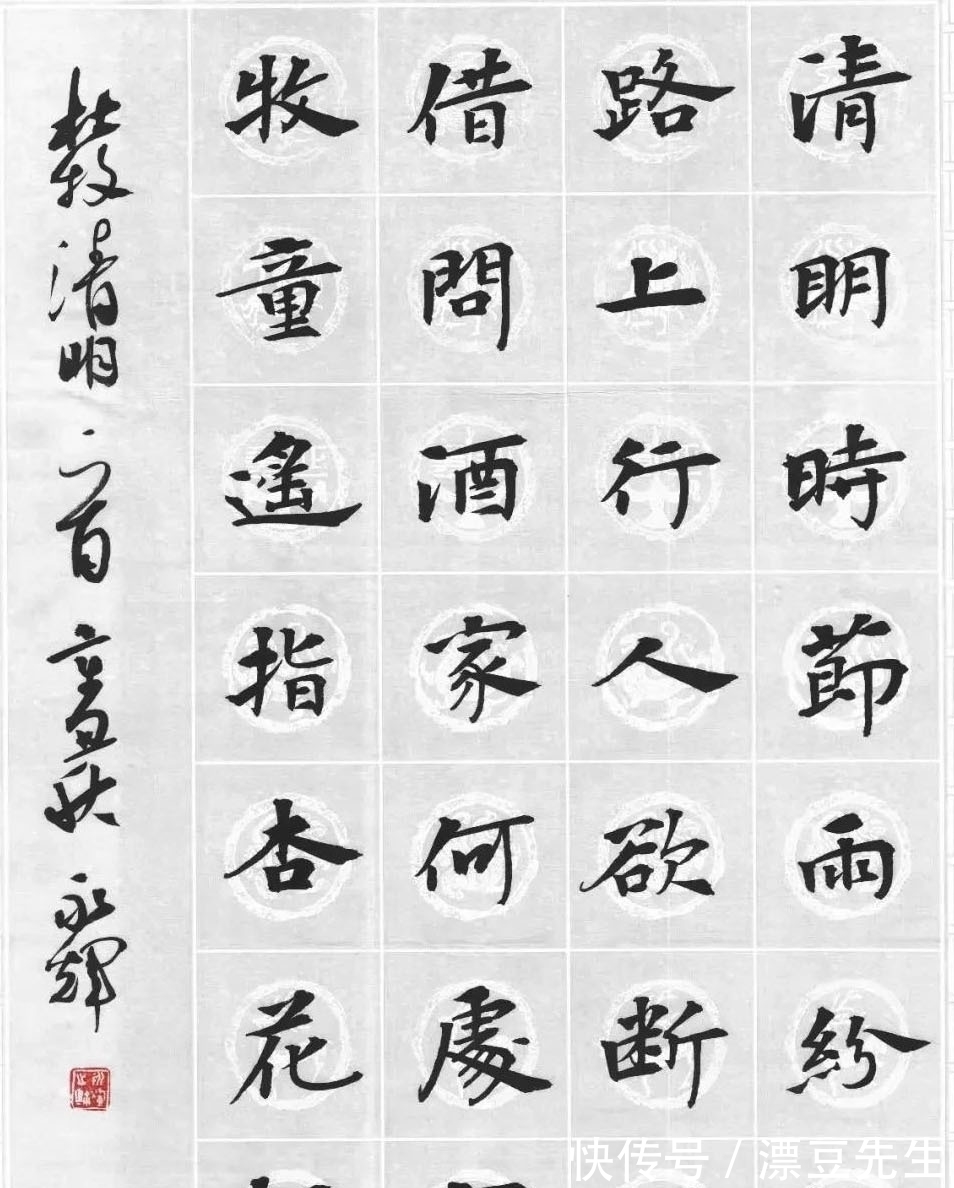 清明時節雨紛
路上行人欲断
借問酒家何處
牧童遙指杏花
杜牧清明一首
永輝
快传号/漂豆先生